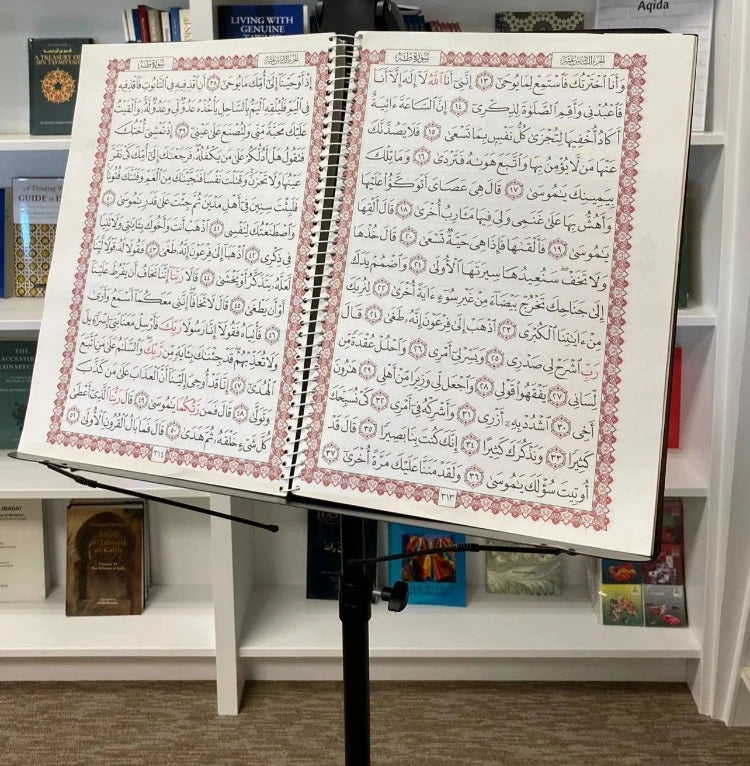 سُورَةُ طه
الجزء السادس عشر
وَأَنَا ٱخْتَرْتُكَ فَٱسْتَمِعْ لِمَا يُوحَىٰٓ ١٣ إِنَّنِىٓ أَنَا ٱللَّهُ لَآ إِلَٰهَ إِلَّآ أَنَا۠
فَٱعْبُدْنِى وَأَقِمِ ٱلصَّلَوٰةَ لِذِكْرِىٓ ١٤ إِنَّ ٱلسَّاعَةَ ءَاتِيَةٌ
أَكَادُ أُخْفِيهَا لِتُجْزَىٰ كُلُّ نَفْسٍۭ بِمَا تَسْعَىٰ ١٥ فَلَا يَصُدَّنَّكَ
عَنْهَا مَن لَّا يُؤْمِنُ بِهَا وَٱتَّبَعَ هَوَىٰهُ فَتَرْدَىٰ ١٦ وَمَا تِلْكَ
بِيَمِينِكَ يَٰمُوسَىٰ ١٧ قَالَ هِىَ عَصَاىَ أَتَوَكَّؤُا۟ عَلَيْهَا
وَأَهُشُّ بِهَا عَلَىٰ غَنَمِى وَلِىَ فِيهَا مَـَٔارِبُ أُخْرَىٰ ١٨ قَالَ أَلْقِهَا
يَٰمُوسَىٰ ١٩ فَأَلْقَىٰهَا فَإِذَا هِىَ حَيَّةٌ تَسْعَىٰ ٢٠ قَالَ خُذْهَا
وَلَا تَخَفْ سَنُعِيدُهَا سِيرَتَهَا ٱلْأُولَىٰ ٢١ وَٱضْمُمْ يَدَكَ
إِلَىٰ جَنَاحِكَ تَخْرُجْ بَيْضَآءَ مِنْ غَيْرِ سُوٓءٍ ءَايَةً أُخْرَىٰ ٢٢ لِنُرِيَكَ
مِنْ ءَايَٰتِنَا ٱلْكُبْرَى ٢٣ ٱذْهَبْ إِلَىٰ فِرْعَوْنَ إِنَّهُۥ طَغَىٰ ٢٤ قَالَ
رَبِّ ٱشْرَحْ لِى صَدْرِى ٢٥ وَيَسِّرْ لِىٓ أَمْرِى ٢٦ وَٱحْلُلْ عُقْدَةً مِّن
لِّسَانِى ٢٧ يَفْقَهُوا۟ قَوْلِى ٢٨ وَٱجْعَل لِّى وَزِيرًا مِّنْ أَهْلِى ٢٩ هَٰرُونَ
أَخِى ٣٠ ٱشْدُدْ بِهِۦٓ أَزْرِى ٣١ وَأَشْرِكْهُ فِىٓ أَمْرِى ٣٢ كَىْ نُسَبِّحَكَ
كَثِيرًا ٣٣ وَنَذْكُرَكَ كَثِيرًا ٣٤ إِنَّكَ كُنتَ بِنَا بَصِيرًا ٣٥ قَالَ قَدْ
أُوتِيتَ سُؤْلَكَ يَٰمُوسَىٰ ٣٦ وَلَقَدْ مَنَنَّا عَلَيْكَ مَرَّةً أُخْرَىٰٓ ٣٧
٣١٣
الجزء السادس عشر
سُورَةُ طه
إِذْ أَوْحَيْنَآ إِلَىٰٓ أُمِّكَ مَا يُوحَىٰٓ ٣٨ أَنِ ٱقْذِفِيهِ فِى ٱلتَّابُوتِ فَٱقْذِفِيهِ
فِى ٱلْيَمِّ فَلْيُلْقِهِ ٱلْيَمُّ بِٱلسَّاحِلِ يَأْخُذْهُ عَدُوٌّ لِّى وَعَدُوٌّ لَّهُۥ وَأَلْقَيْتُ
عَلَيْكَ مَحَبَّةً مِّنِّى وَلِتُصْنَعَ عَلَىٰ عَيْنِىٓ ٣٩ إِذْ تَمْشِىٓ أُخْتُكَ
فَتَقُولُ هَلْ أَدُلُّكُمْ عَلَىٰ مَن يَكْفُلُهُۥ فَرَجَعْنَٰكَ إِلَىٰٓ أُمِّكَ كَىْ تَقَرَّ
عَيْنُهَا وَلَا تَحْزَنَ وَقَتَلْتَ نَفْسًا فَنَجَّيْنَٰكَ مِنَ ٱلْغَمِّ وَفَتَنَّٰكَ فُتُونًا
فَلَبِثْتَ سِنِينَ فِىٓ أَهْلِ مَدْيَنَ ثُمَّ جِئْتَ عَلَىٰ قَدَرٍ يَٰمُوسَىٰ ٤٠
وَٱصْطَنَعْتُكَ لِنَفْسِى ٤١ ٱذْهَبْ أَنتَ وَأَخُوكَ بِـَٔايَٰتِى وَلَا تَنِيَا
فِى ذِكْرِى ٤٢ ٱذْهَبَآ إِلَىٰ فِرْعَوْنَ إِنَّهُۥ طَغَىٰ ٤٣ فَقُولَا لَهُۥ قَوْلًا لَّيِّنًا
لَّعَلَّهُۥ يَتَذَكَّرُ أَوْ يَخْشَىٰ ٤٤ قَالَا رَبَّنَآ إِنَّنَا نَخَافُ أَن يَفْرُطَ عَلَيْنَآ
أَوْ أَن يَطْغَىٰ ٤٥ قَالَ لَا تَخَافَآ إِنَّنِى مَعَكُمَآ أَسْمَعُ وَأَرَىٰ
٤٦ فَأْتِيَاهُ فَقُولَآ إِنَّا رَسُولَا رَبِّكَ فَأَرْسِلْ مَعَنَا بَنِىٓ إِسْرَٰٓءِيلَ
وَلَا تُعَذِّبْهُمْ قَدْ جِئْنَٰكَ بِـَٔايَةٍ مِّن رَّبِّكَ وَٱلسَّلَٰمُ عَلَىٰ مَنِ ٱتَّبَعَ
ٱلْهُدَىٰٓ ٤٧ إِنَّا قَدْ أُوحِىَ إِلَيْنَآ أَنَّ ٱلْعَذَابَ عَلَىٰ مَن كَذَّبَ
وَتَوَلَّىٰ ٤٨ قَالَ فَمَن رَّبُّكُمَا يَٰمُوسَىٰ ٤٩ قَالَ رَبُّنَا ٱلَّذِىٓ أَعْطَىٰ
كُلَّ شَىْءٍ خَلْقَهُۥ ثُمَّ هَدَىٰ ٥٠ قَالَ فَمَا بَالُ ٱلْقُرُونِ ٱلْأُولَىٰ ٥١
٣١٤
Aqida
LIVING WITH
GENUINE
A TREASURY OF
IBN TAYMIYYAH
GUIDE TO
THE ACCESSIBLE
CONSPECTUS
Kitab
al-Tabaqat
al-Kabir